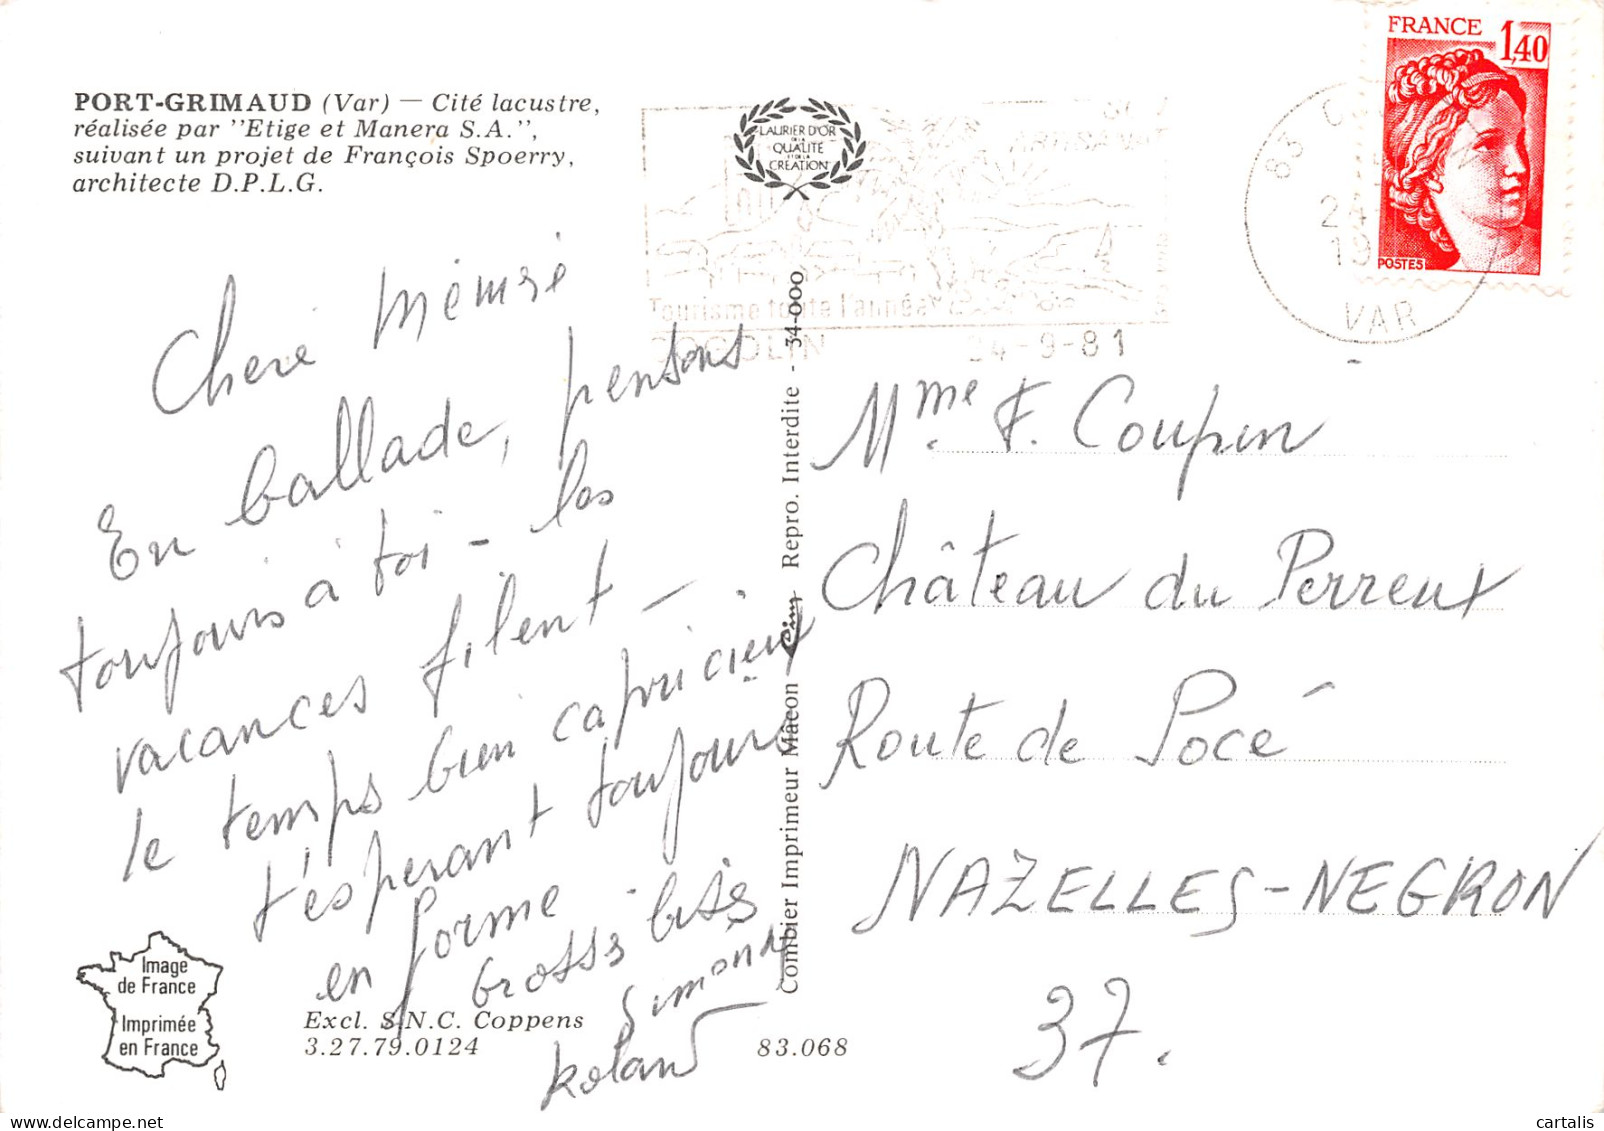 PORT-GRIMAUD (Var) — Cité lacustre,
réalisée par "Etige et Manera S.A.",
suivant un projet de François Spoerry,
architecte D.P.L.G.
LAURIER D'OR
DE LA
QUALITÉ
ET DE LA
CRÉATION
Tourisme toute l'année
COGOLIN 24-9-81
FRANCE 1,40
POSTES
83
24
19
VAR
Chere Mémé
En ballade, pensons
toujours à toi - les
vacances filent -
le temps bien capricieux
t'esperant toujours
en forme
Grosses bises
Simone
Roland
Mme F. Coupen
Château du Perreux
Route de Pocé
NAZELLES-NEGRON
37.
Combier Imprimeur Mâcon Cim Repro. Interdite - 34-000
Image
de France
Imprimée
en France
Excl. S.N.C. Coppens
3.27.79.0124
83.068
cartalis